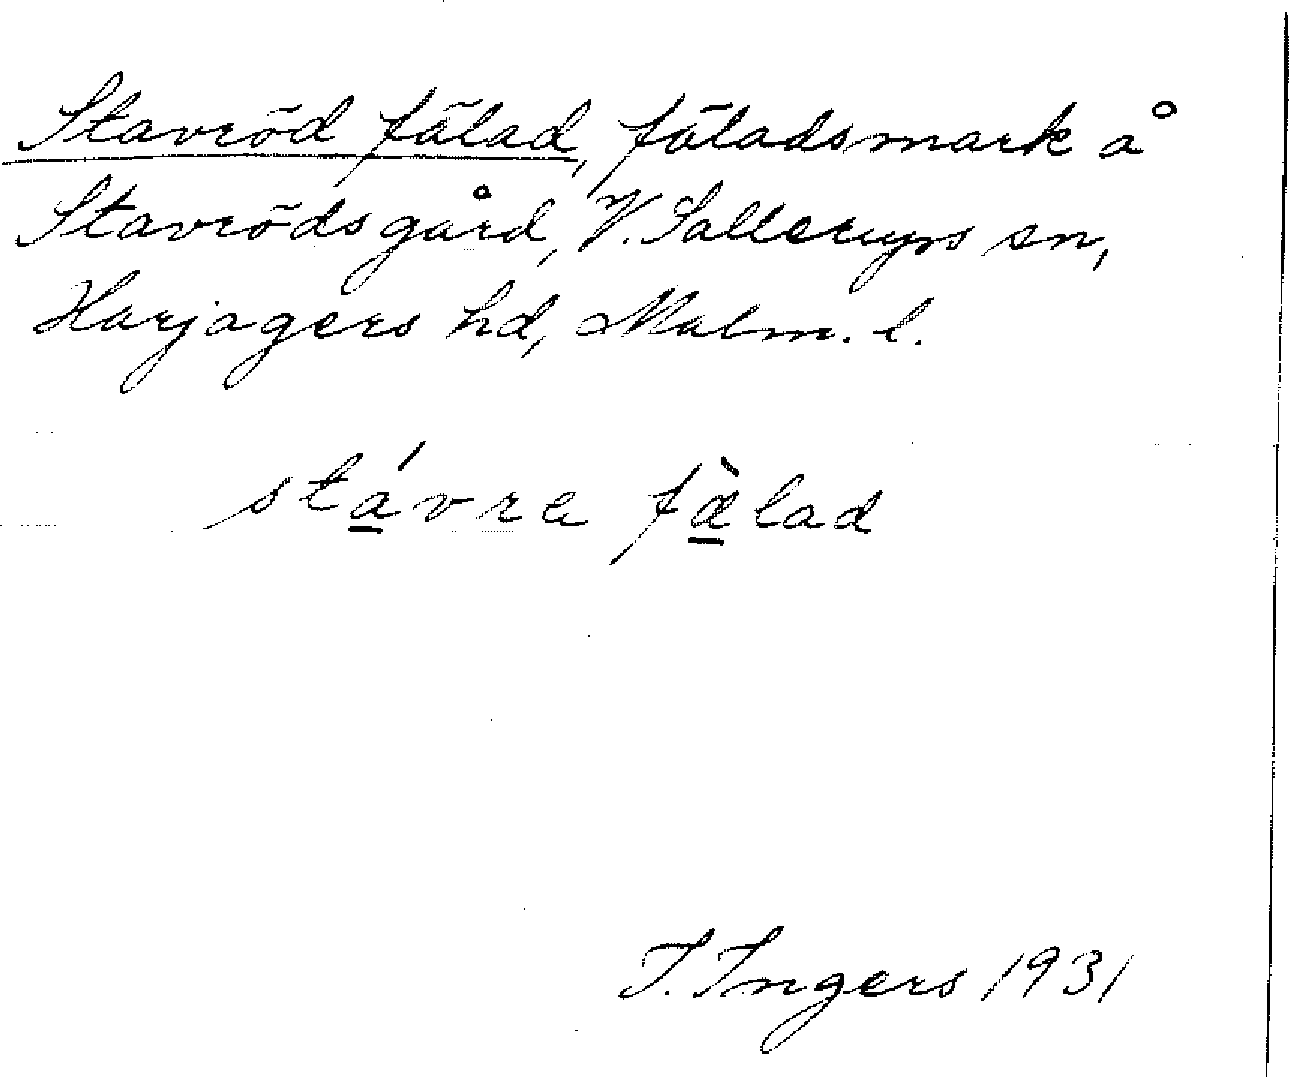 Stavröd fälad, fäladsmark å
Stavröds gård, V. Sallerups sn,
Harjagers hd, Malm. l.
stávra fàlad
I. Ingers 1931